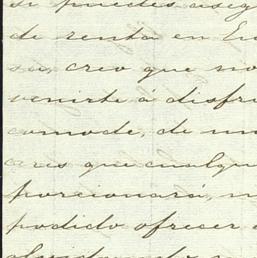 si puedes aseg
de renta en Eu
su, creo que no
venirte á disfru
comode, de un
ares que cualqu
porcionará, n
podido ofrecer